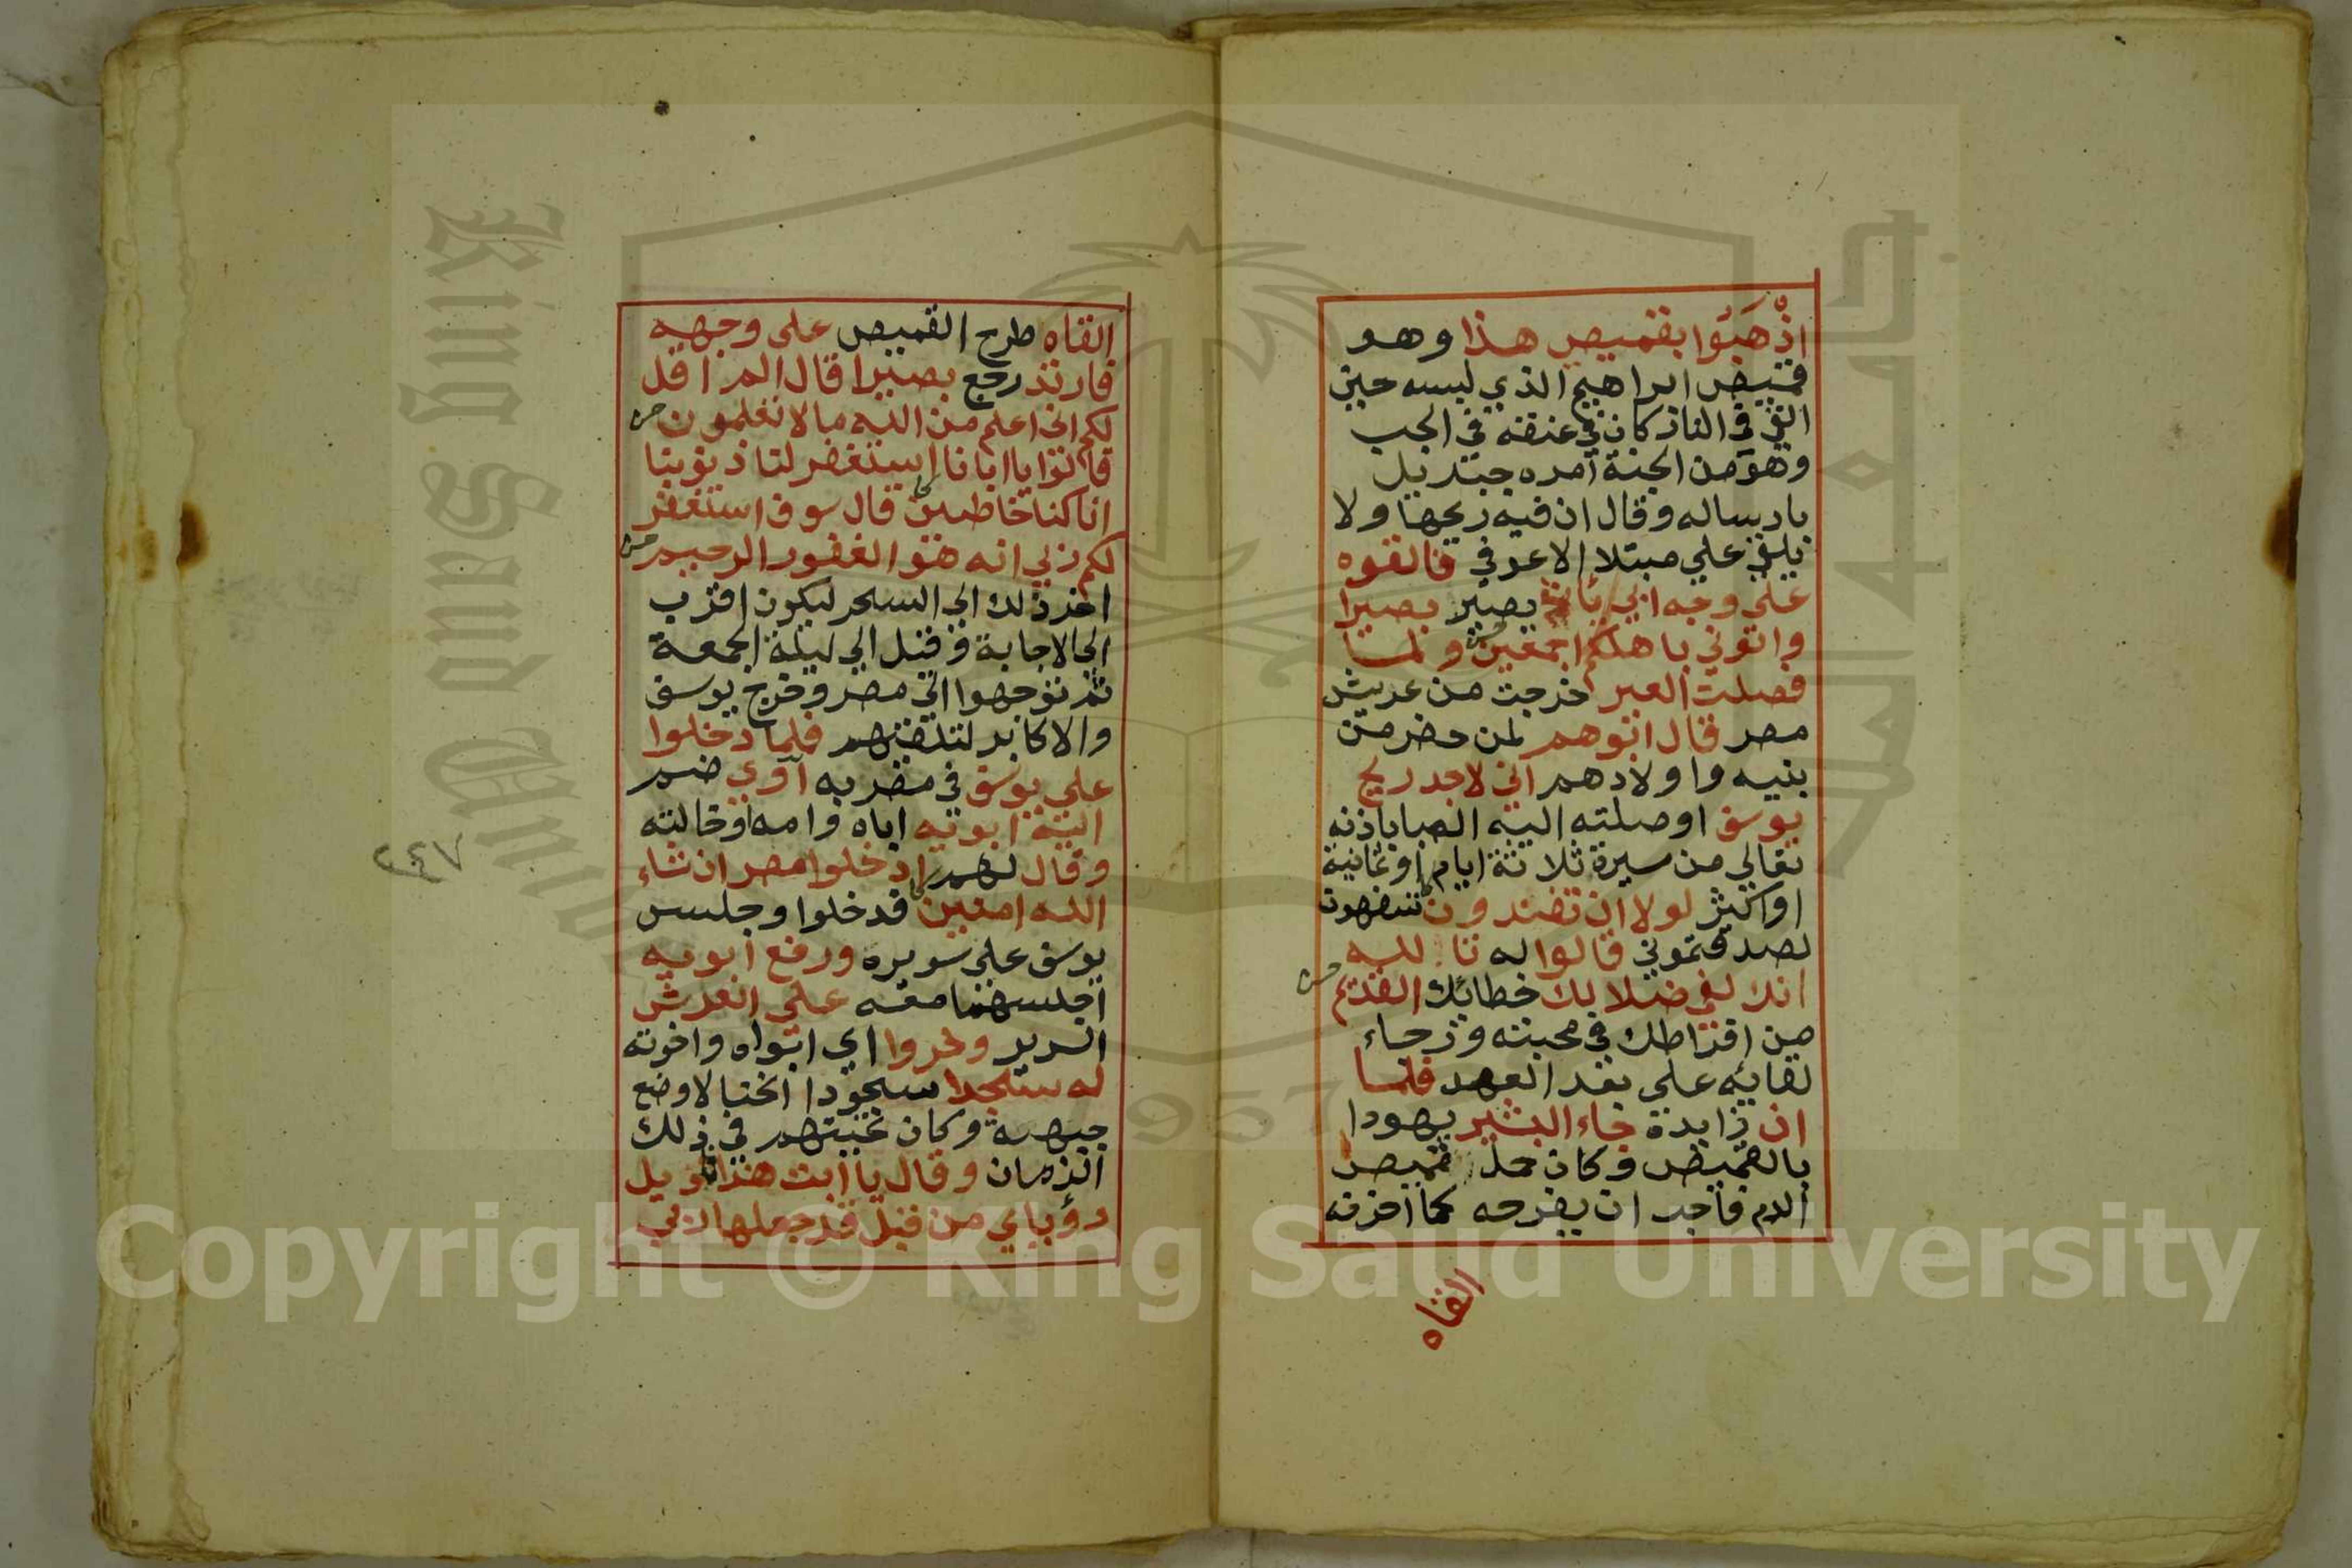 اذْهَبُوا بقميصي هذا وهو
قميص ابراهيم الذي لبسه حين
القي في النار كان في عنقه في الجب
وهو من الجنة امره جبريل
بارساله وقال ان فيه ريحها ولا
يلقي علي مبتلا الا عوفي فالقوه
علي وجه ابي يات يصير بصيرا
واتوني باهلكم اجمعين ولما
فصلت العير خرجت من عريش
مصر قال ابوهم لمن حضر من
بنيه واولادهم اني لاجد ريح
يوسف اوصلته اليه الصبا باذنه
تعالي من سيرة ثلاثة ايام او ثمانية
او اكثر لولا ان تفندون تسفهون
لصدقتموني قالوا له تا لله
انك لفي ضلالك خطائك القديم
من افراطك في محبته ورجاء
لقايه علي بعد العهد فلما
ان زايدة جاء البشير يهودا
بالقميص وكان حمل قميص
الدم فاحب ان يفرحه كما احزنه
القاه
القاه طرح القميص علي وجهه
فارتد رجع بصيرا قال الم اقل
لكم اني اعلم من الله ما لا تعلمون
قالوا يا ابانا استغفر لنا ذنوبنا
انا كنا خاطين قال سوف استغفر
لكم ربي انه هو الغفور الرحيم
اخر ذلك الي السحر ليكون اقرب
الي الاجابة وقيل الي ليلة الجمعة
ثم توجهوا الي مصر وخرج يوسف
والاكابر لتلقيهم فلما دخلوا
علي يوسف في مضربه آوي ضم
اليه ابويه اباه وامه او خالته
وقال لهم ادخلوا مصر ان شاء
الله امنين فدخلوا وجلس
يوسف علي سريره ورفع ابويه
اجلسهما معه علي العرش
السرير وخروا اي ابواه واخوته
له سجدا سجودا انحنا لا وضع
جبهة وكان تحيتهم في ذلك
الزمان وقال يا ابت هذا تاويل
رؤياي من قبل قد جعلها ربي
٢٤٧
King Saud University
1957
Copyright © King Saud University